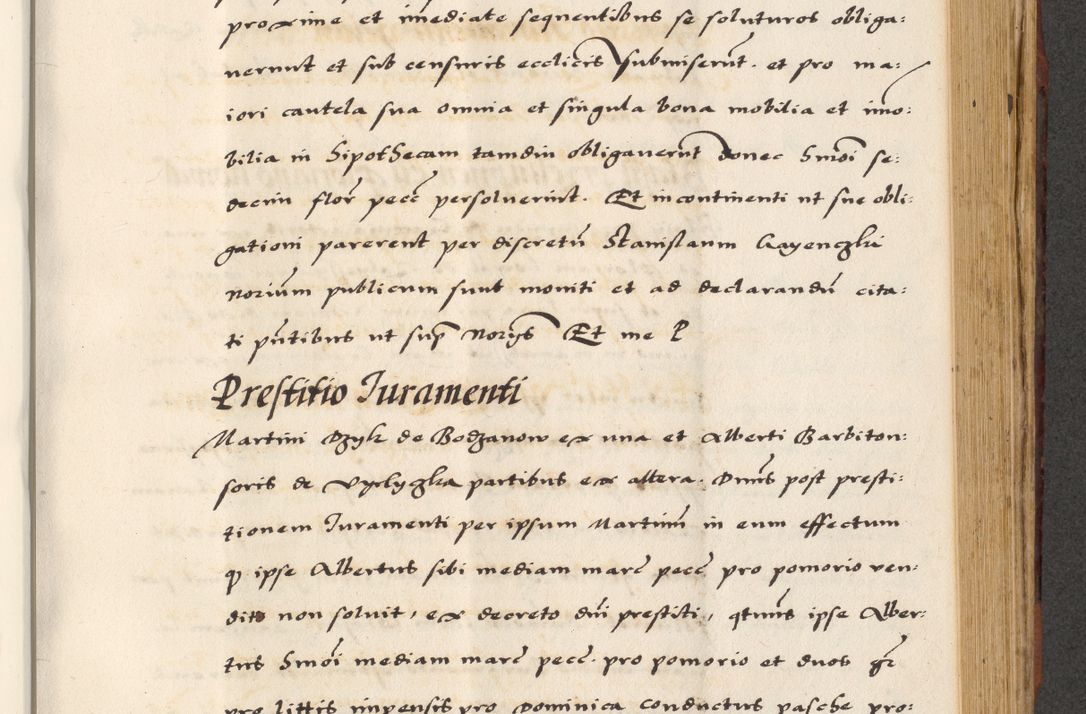 proxime et im̄ediate sequentibus se soluturos obliga:
verunt et sub censuris ecclīcis submiserūt. et pro ma:
iori cautela sua omnia et singula bona mobilia et im̄o:
bilia in hipothecam tamdiu obligaverūt donec hmōi se:
decim flor̄ pecc̄ persolverint. Et incontinenti ut sue obli:
gationi parerent per discretū Stanislaum Gayenczki
Norium publicum sunt moniti et ad declarandū cita:
ti pn̄tibus ut sup̄ Norijs Et me P
Prestitio Juramenti
Martini Dzyk de Bodzanow ex una et Alberti Barbiton:
soris de Vyelyczka partibus ex altera. Dn̄us post presti:
tionem Juramenti per ipsum Martinū in eum effectum
qɔ ipse Albertus sibi mediam marc̄ pecc̄ pro pomorio ven:
dito non solvit, ex decreto dn̄i prestiti, qtn̄us ipse Alber:
tus hmōi mediam marc̄ pecc̄. pro pomorio et duos gr̄
pro litt̄is impensis pro Dominica conductus pasche pro: